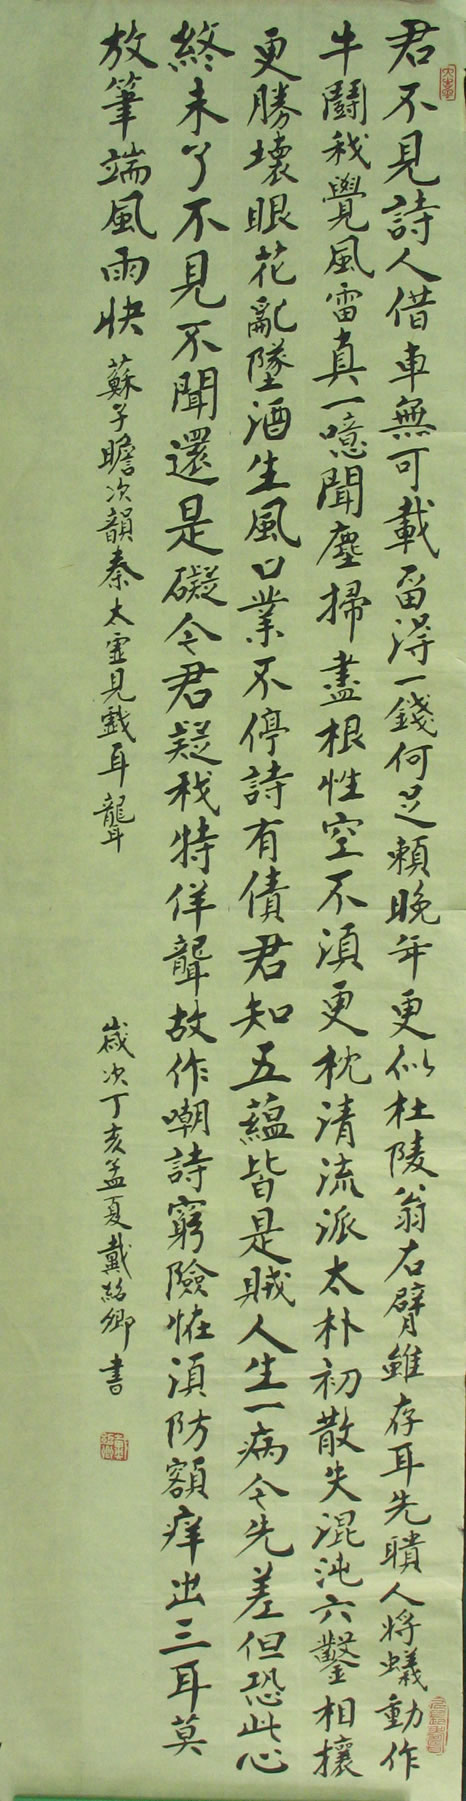 君不見詩人借車無可載留得一錢何足賴晚年更似杜陵翁右臂雖存耳先聵人將蟻動作
牛鬪我覺風雷真一噫聞塵掃盡根性空不須更枕清流派太朴初散失混沌六鑿相攘
更勝壞眼花亂墜酒生風口業不停詩有債君知五蘊皆是賊人生一病今先差但恐此心
終未了不見不聞還是礙今君疑我特佯聾故作嘲詩窮險怪須防額痒出三耳莫
放筆端風雨快 蘇子瞻次韻秦太虛見戲耳聾
歲次丁亥孟夏戴紹卿書